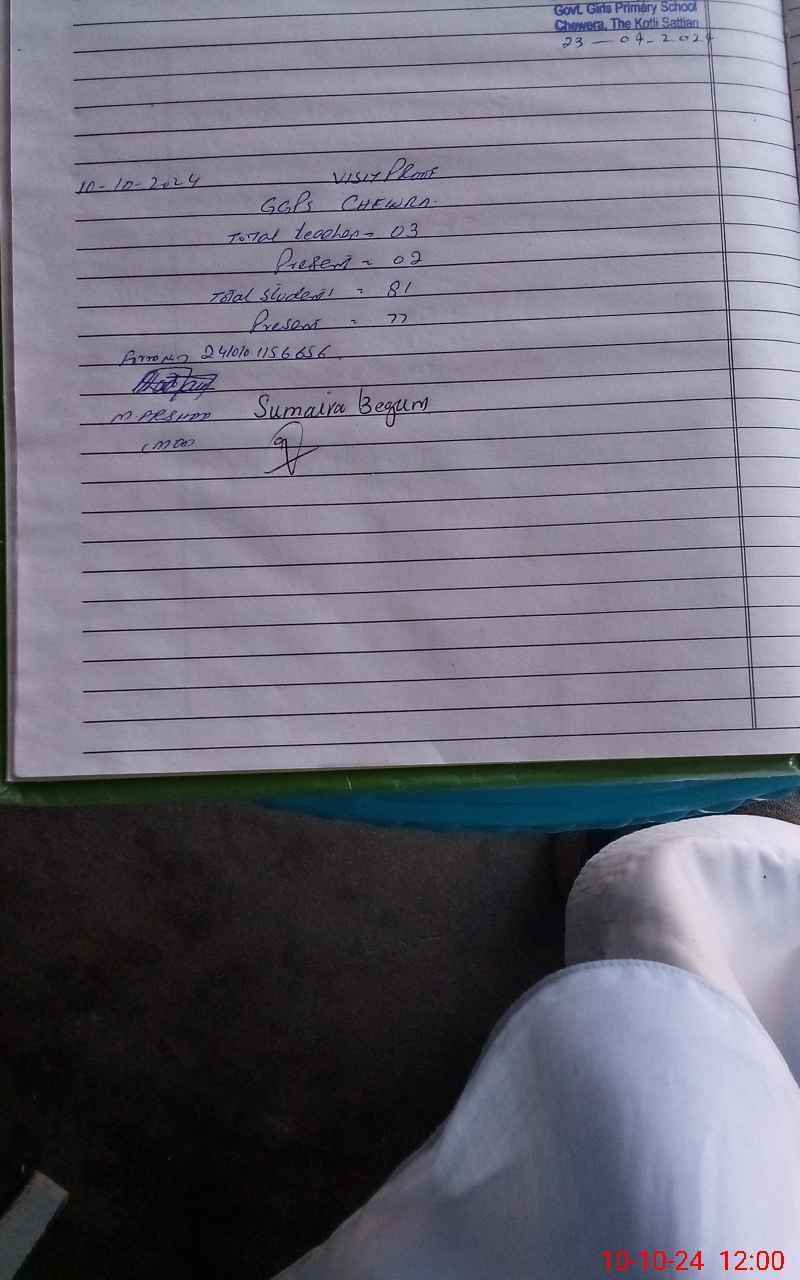 Govt. Girls Primary School
Chewera, The Kotli Sattian
23-04-2024
10-10-2024 VISIT PROOF
GGPS CHEWRA.
Total teacher = 03
Present = 02
Total student = 81
Present = 77
M. ARSHAD Sumaira Begum
10-10-24 12:00